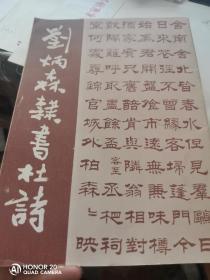 劉炳森隸書杜詩
舍南舍北皆春水但見羣鷗日
日來花徑不曾緣客掃蓬門今
始為君開盤飧市遠無兼味樽
酒家貧只舊醅肯與隣翁相對
飲隔籬呼取盡餘杯客至丞相祠
堂何處尋錦官城外柏森〻映
HONOR 20
AI QUAD CAMERA